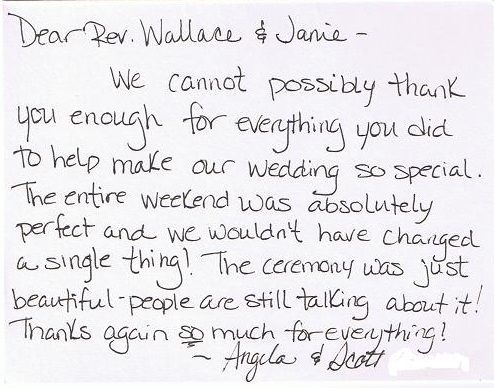 Dear Rev. Wallace & Janie -
We cannot possibly thank
you enough for everything you did
to help make our wedding so special.
The entire weekend was absolutely
perfect and we wouldn't have changed
a single thing! The ceremony was just
beautiful - people are still talking about it!
Thanks again so much for everything!
~ Angela & Scott